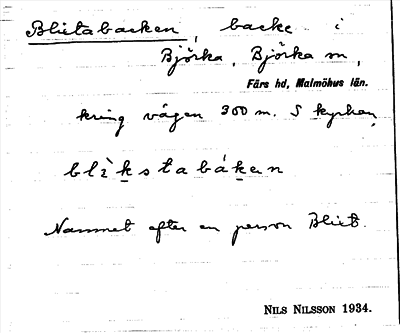 Blixtabacken, backe i
Björka, Björka sn,
Färs hd, Malmöhus län.
kring vägen 300 m. S kyrkan
blìkstabákan
Namnet efter en person Blixt.
NILS NILSSON 1934.